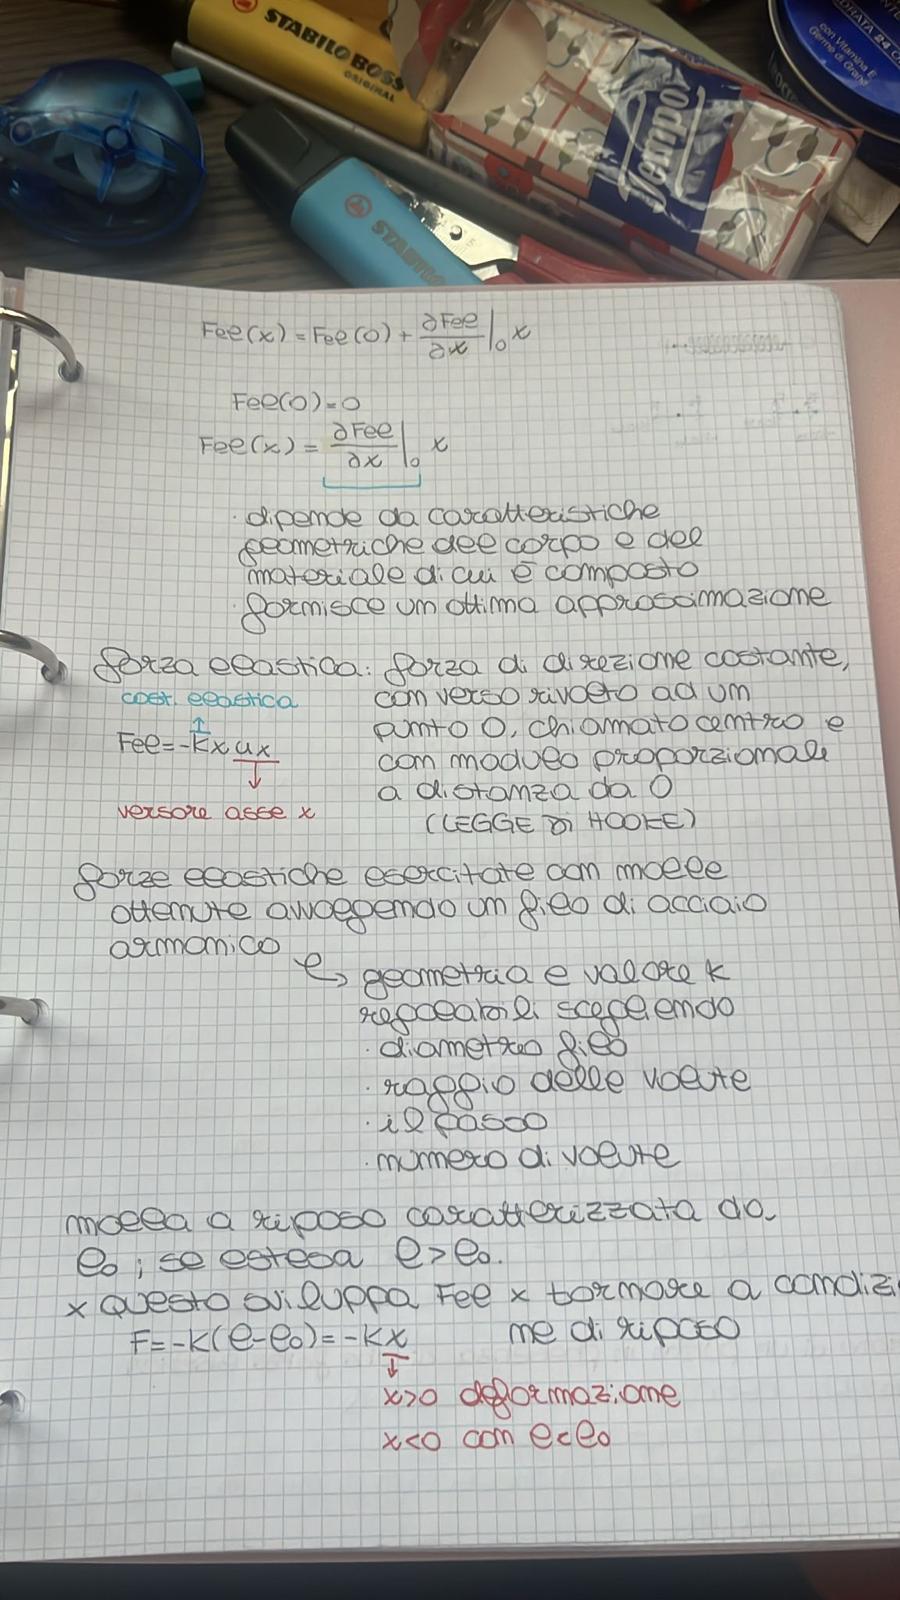 STABILO BOSS
ORIGINAL
STABILO
Tempo
IDRATA 24
con Vitamina E
Fel(x) = Fel(0) + ∂Fel/∂x |₀ x
Fel(0)=0
Fel(x) = ∂Fel/∂x |₀ x
· dipende da caratteristiche
geometriche del corpo e del
materiale di cui è composto
· fornisce un ottima approssimazione
forza elastica: forza di direzione costante,
cost. elastica
con verso rivolto ad un
punto O, chiamato centro e
Fel = -kx ux
con modulo proporzionale
a distanza da O
versore asse x
(LEGGE DI HOOKE)
forze elastiche esercitate con molle
ottenute avvolgendo un filo di acciaio
armonico
↳ geometria e valore k
regolabili scegliendo
· diametro filo
· raggio delle volute
· il passo
· numero di volute
molla a riposo caratterizzata da
l₀ ; se estesa l>l₀.
x questo sviluppa Fel x tornare a condizi
F=-k(l-l₀)=-kx
ne di riposo
x>0 deformazione
x<0 con l<l₀